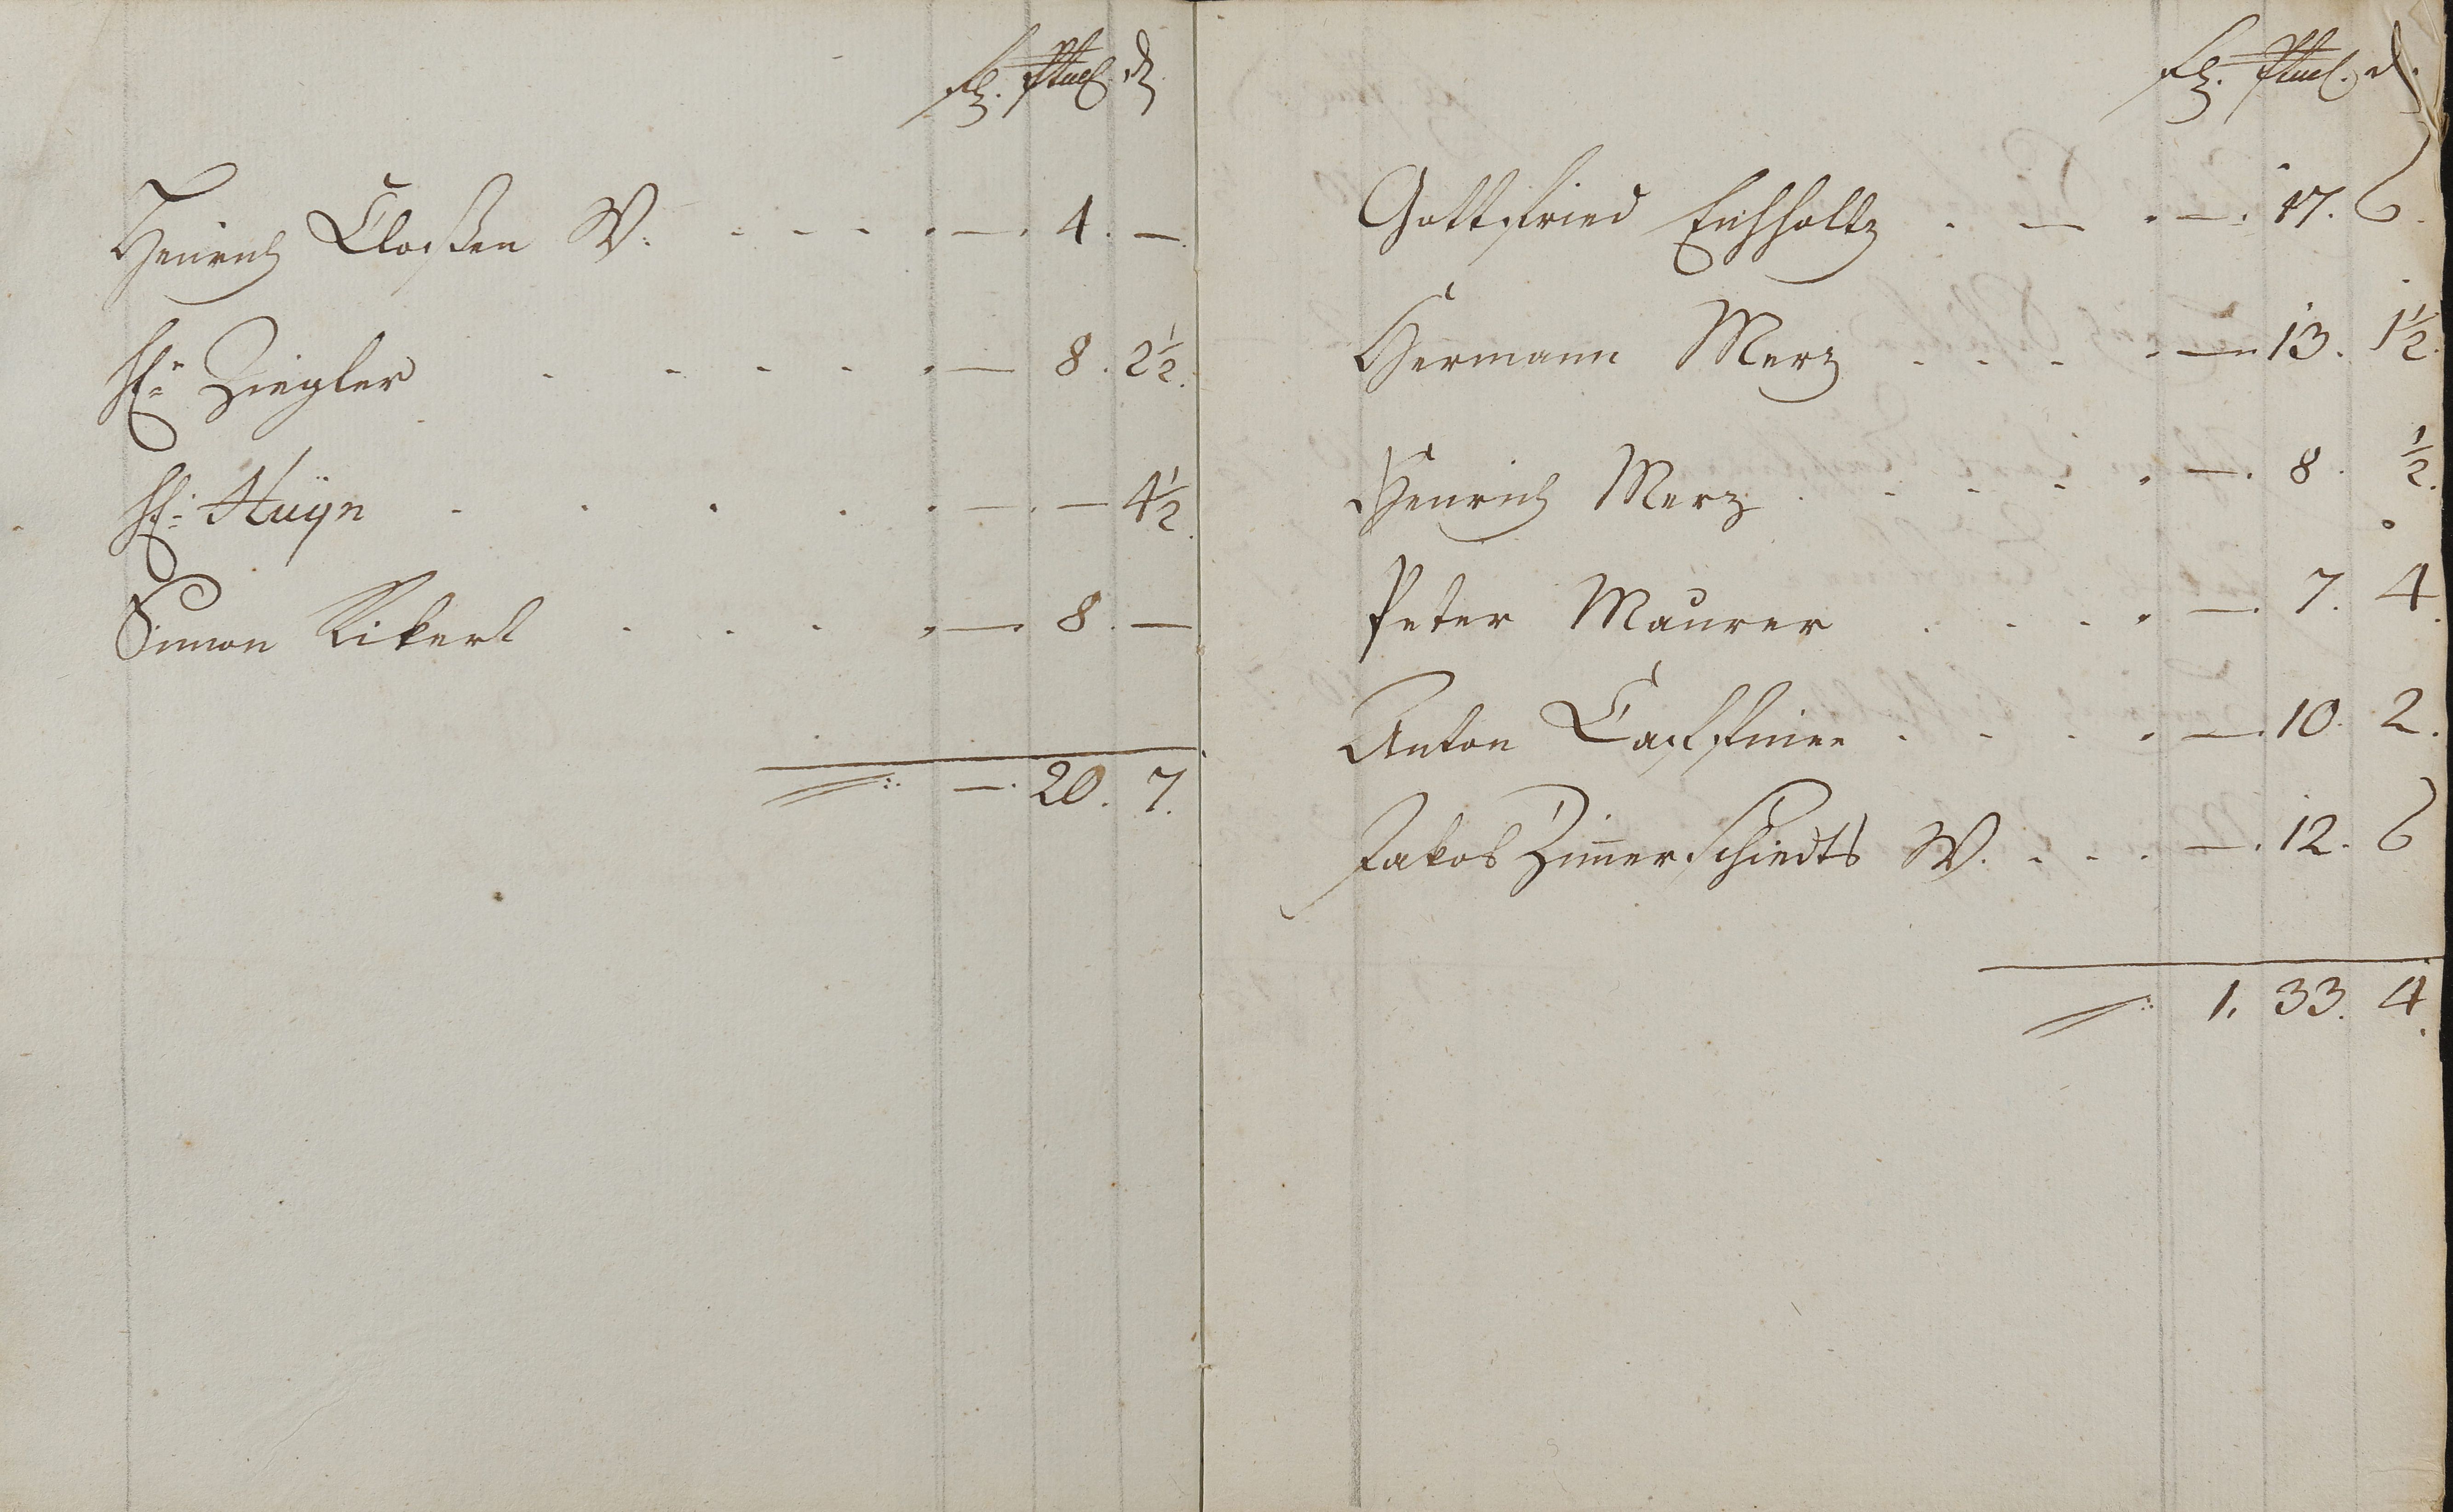 fl. stbl. d.
Henrich Cloßen W. — 4. —
H: Ziegler — 8. 2½.
H: Huÿn — — 4½.
Simon Rikert — 8. —
— 20. 7.
fl. stbl. d.
Gottfried Eichholtz — 17. 6.
Hermann Merz — 13. 1½.
Henrich Merz — 8. ½.
Peter Maurer — 7. 4.
Anton — 10. 2.
Jakob Zim̅erschiedts W. — 12. 6
1. 33. 4.